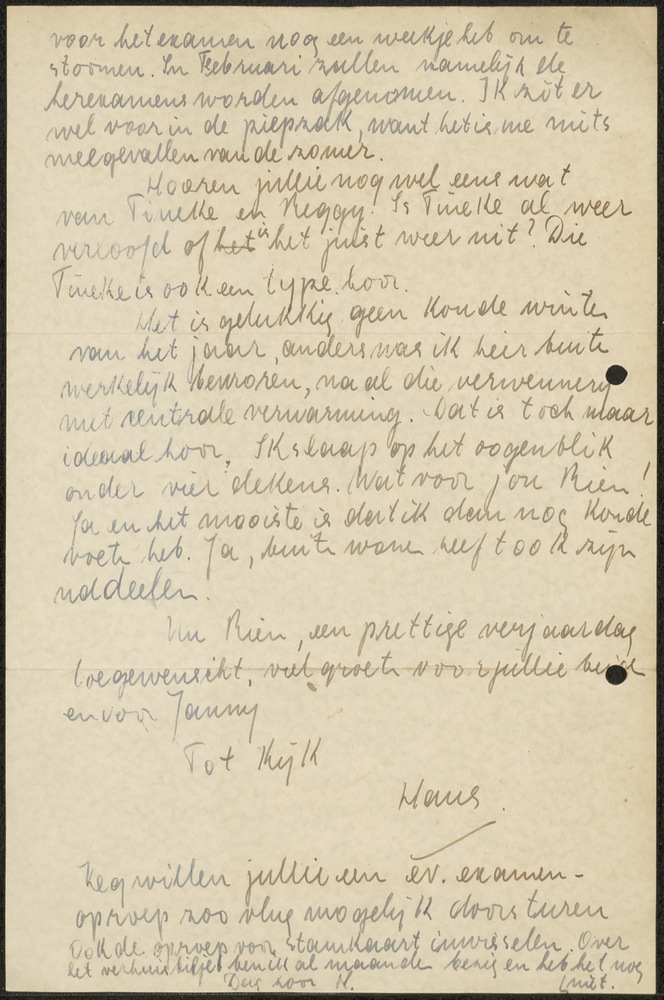 voor het examen noog een weekje heb om te
stoomen. In Februari zullen namelijk de
herexamens worden afgenomen. Ik zit er
wel voor in de piepzak, want het is me niets
meegevallen van de zomer.
Hooren jullie nog wel eens wat
van Tineke en Reggy? Is Tineke al weer
verloofd of het is het juist weer uit? Die
Tineke is ook een type hoor.
Het is gelukkig geen koude winter
van het jaar, anders was ik hier buiten
werkelijk bevroren, na al die verwennerij
met centrale verwarming. Dat is toch maar
ideaal hoor. Ik slaap op het oogenblik
onder vier dekens. Wat voor jou Rien!
Ja en het mooiste is dat ik dan nog koude
voeten heb. Ja, buiten wonen heeft ook zijn
nddeelen.
Nu Rien, een prettige verjaardag
toegewenscht, veel groeten voor jullie beide
en voor Janny
Tot Kijk
Hans.
Zeg willen jullie een ev. examen-
oproep zoo vlug mogelijk doorsturen
Ook de oproep voor stamkaart inwisselen. Over
het verhuisbiljet ben ik al maanden bezig en heb het nog
niet.
Dag hoor H.